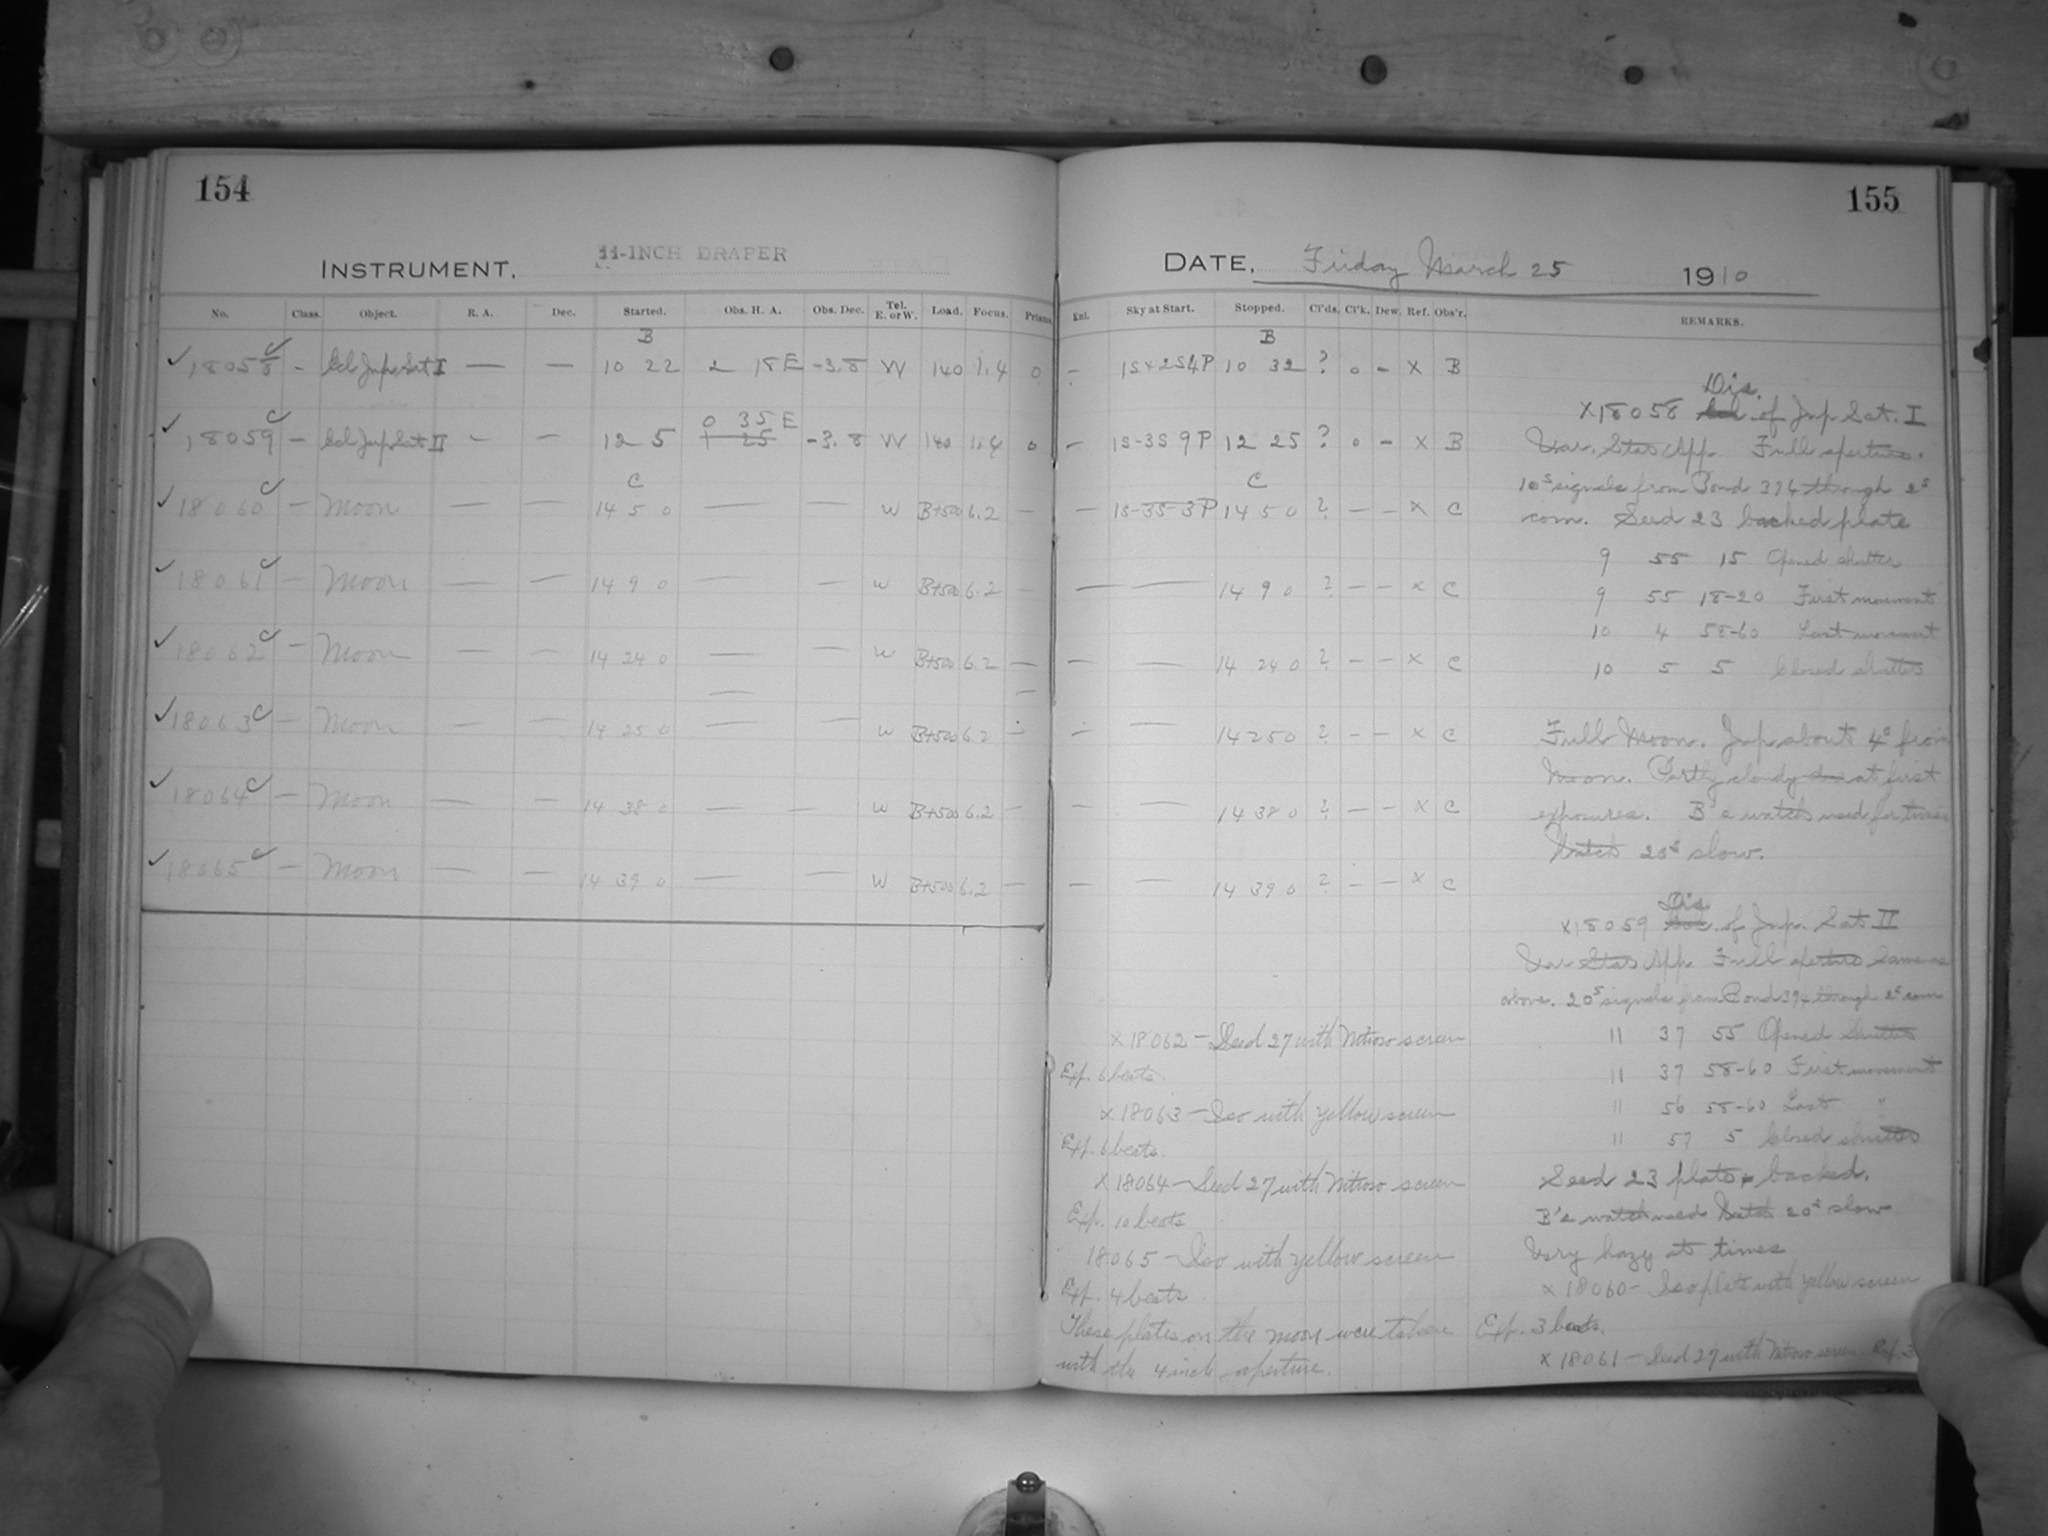 154
INSTRUMENT, 11-INCH DRAPER
No. Class. Object. R. A. Dec. Started. Obs. H. A. Obs. Dec. Tel. E. or W. Load. Focus. Prisms
B
18058 – Ecl Jup. Sat I — — 10 22 2 18 E -3.8 W 140 1.4 0
0 35 E
18059 – Ecl Jup Sat II – — 12 5 1 25 -3.8 W 140 1.4 0
C
18060 – Moon — — 14 5 0 — — W B+500 6.2 —
18061 – Moon — — 14 9 0 — — W B+500 6.2 —
18062 – Moon — — 14 24 0 — — W B+500 6.2 —
18063 – Moon — — 14 25 0 — — W B+500 6.2 —
18064 – Moon — — 14 38 0 — — W B+500 6.2 —
18065 – Moon — — 14 39 0 — — W B+500 6.2 —
155
DATE, Friday March 25 1910
Enl. Sky at Start. Stopped. Cl'ds. Cl'k. Dew. Ref. Obs'r. REMARKS.
B
– 1S+2S4P 10 32 ? 0 – X B
– 1S-3S 9P 12 25 ? 0 – X B
C
– 1S-3S-3P 14 5 0 ? – – X C
— — 14 9 0 ? – – X C
— — 14 24 0 ? – – X C
– — 14 25 0 ? – – X C
– — 14 38 0 ? – – X C
– — 14 39 0 ? – – X C
X 18062 – Seed 27 with Nitroso screen
Exp. 6 beats
X 18063 – Iso with yellow screen
Exp. 6 beats.
X 18064 – Seed 27 with Nitroso screen
Exp. 10 beats
18065 – Iso with yellow screen
Exp. 4 beats.
These plates on the moon were taken
with the 4 inch aperture.
Dis.
X18058 Ecl. of Jup Sat. I
Var. Star App. Full aperture.
10s signals from Bond 394 through 2s
com. Seed 23 backed plate
9 55 15 Opened shutter
9 55 18-20 First movement
10 4 58-60 Last movement
10 5 5 Closed shutter
Full Moon. Jup. about 4° from
Moon. Partly cloudy at first
exposures. B's watch used for times
Watch 20s slow.
Dis
X18059 Ecl. of Jup. Sat II
Var Star App Full aperture Same as
above. 20s signals from Bond 394 through 2s com
11 37 55 Opened Shutter
11 37 58-60 First movement
11 56 58-60 Last "
11 57 5 Closed shutter
Seed 23 plate backed.
B's watch used Watch 20s slow
Very hazy at times
X 18060 – Iso plate with yellow screen
Exp. 3 beats.
X 18061 – Seed 27 with Nitroso screen Exp. 3